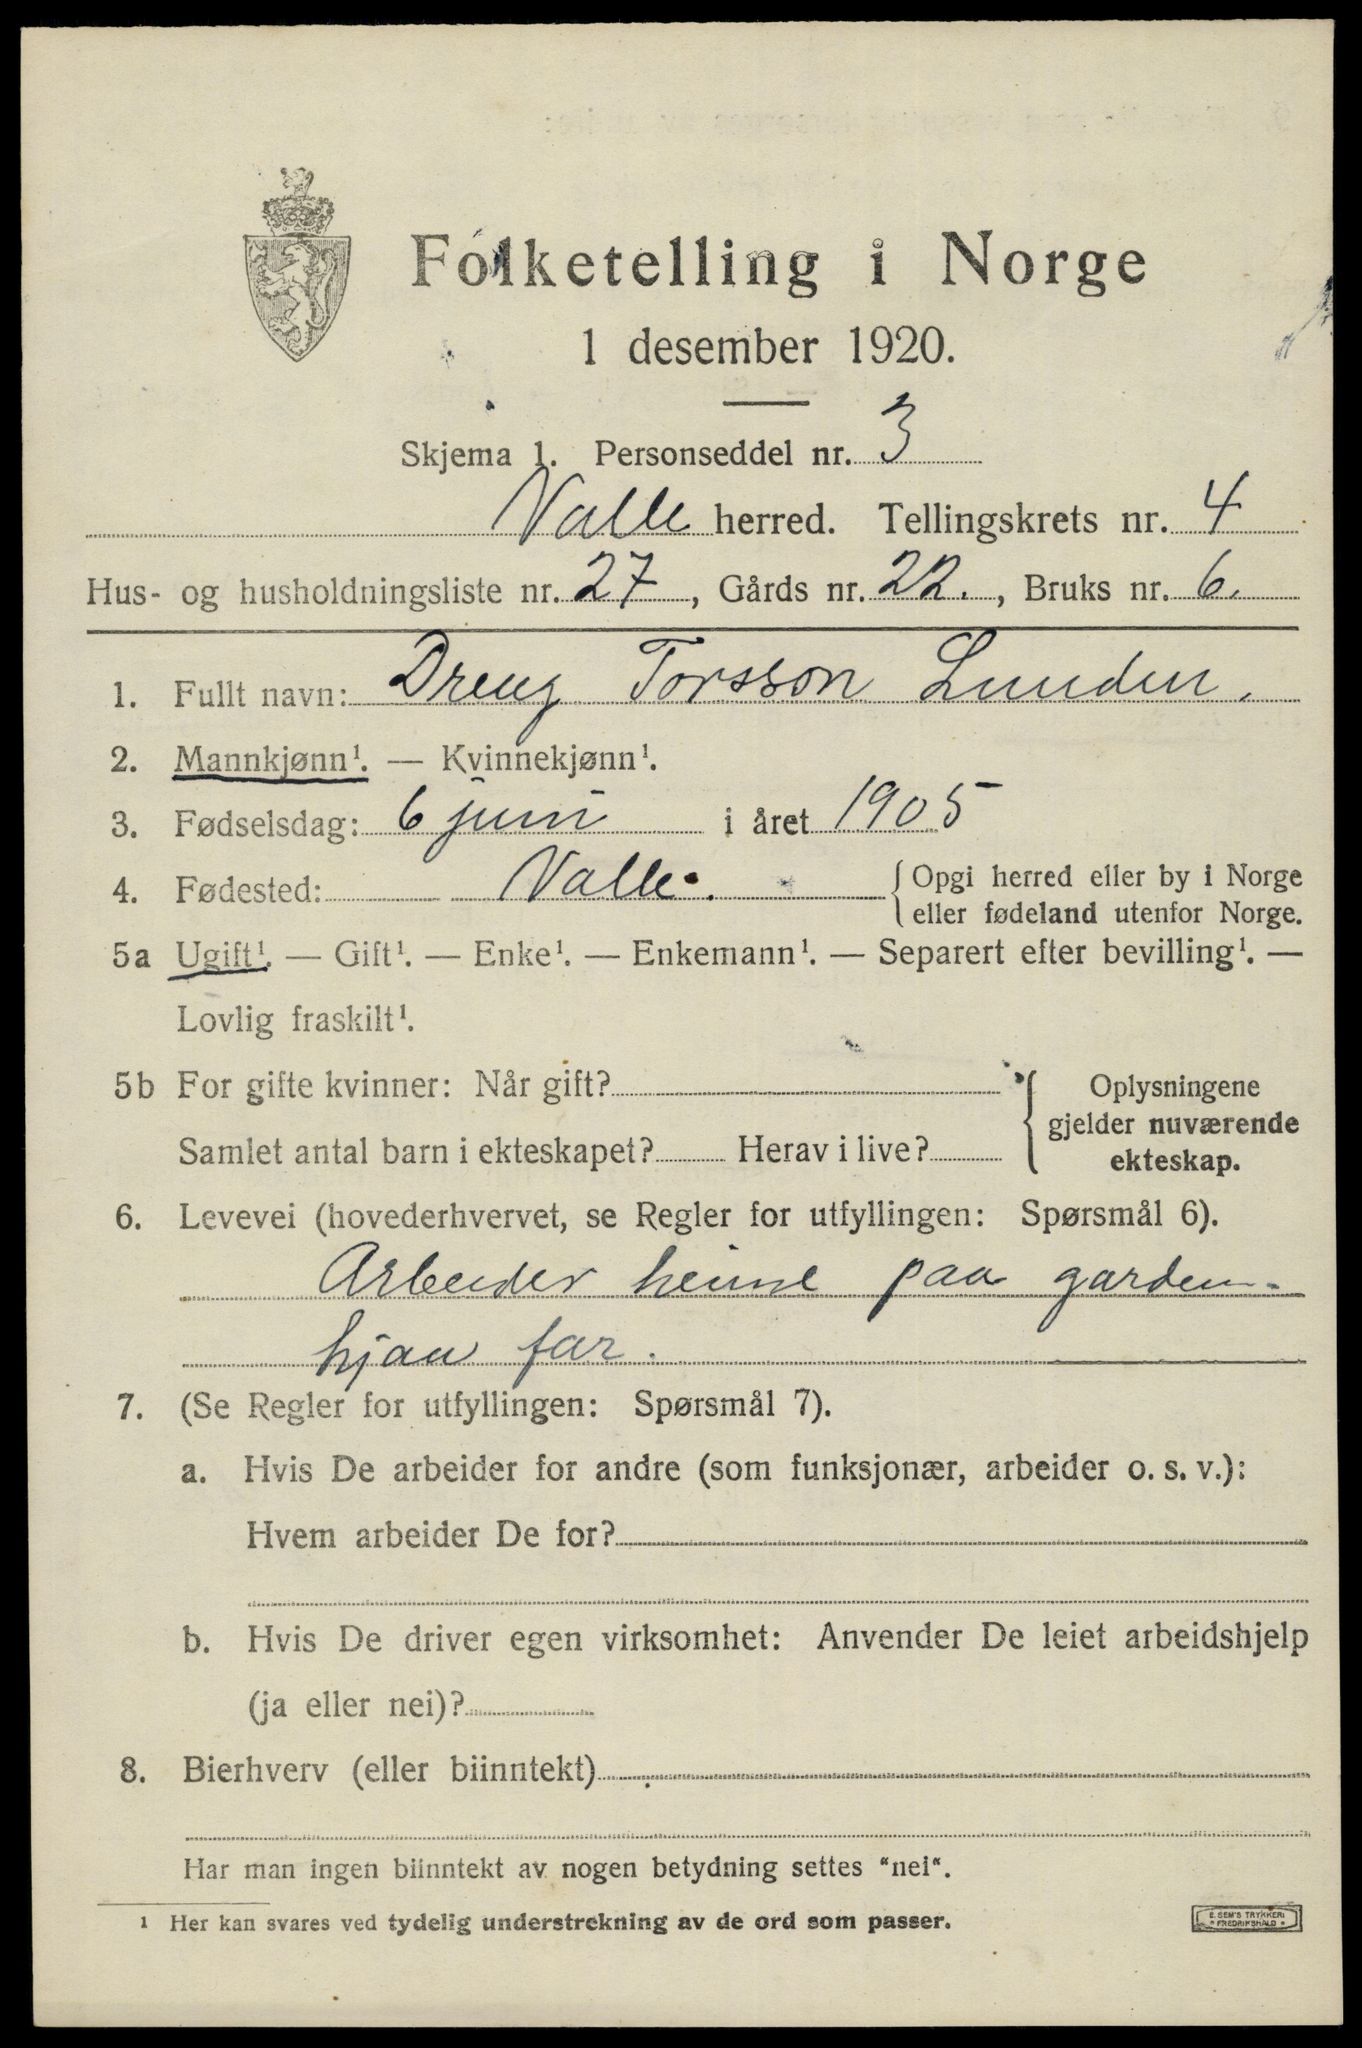 Folketelling i Norge
1 desember 1920.
Skjema 1. Personseddel nr. 3
Valle herred. Tellingskrets nr. 4
Hus- og husholdningsliste nr. 27, Gårds nr. 22., Bruks nr. 6.
1. Fullt navn: Dreng Torsson Lunden.
2. Mannkjønn¹. — Kvinnekjønn¹.
3. Fødselsdag: 6 juni i året 1905
4. Fødested: Valle. { Opgi herred eller by i Norge
eller fødeland utenfor Norge.
5a Ugift¹. — Gift¹. — Enke¹. — Enkemann¹. — Separert efter bevilling¹. —
Lovlig fraskilt¹.
5b For gifte kvinner: Når gift?
Samlet antal barn i ekteskapet? Herav i live?
{ Oplysningene
gjelder nuværende
ekteskap.
6. Levevei (hovederhvervet, se Regler for utfyllingen: Spørsmål 6).
Arbeider heime paa garden
hjaa far.
7. (Se Regler for utfyllingen: Spørsmål 7).
a. Hvis De arbeider for andre (som funksjonær, arbeider o. s. v.):
Hvem arbeider De for?
b. Hvis De driver egen virksomhet: Anvender De leiet arbeidshjelp
(ja eller nei)?
8. Bierhverv (eller biinntekt)
Har man ingen biinntekt av nogen betydning settes "nei".
¹ Her kan svares ved tydelig understrekning av de ord som passer.
E. SEM'S TRYKKERI
FREDRIKSHALD